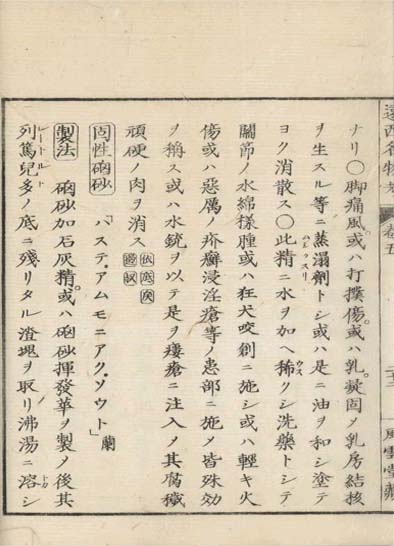 遠西名物考
卷五
風雲堂藏
ナリ〇脚痛風。或ハ打撲傷。或ハ乳凝固メ乳房結核
ヲ生スル等ニ蒸溻劑トシ或ハ是ニ油ヲ和シ塗テ
ヨク消散ス〇此精ニ水ヲ加ヘ稀クシ洗藥トシテ
關節ノ水綿様腫或ハ狂犬咬創ニ施シ或ハ輕キ火
傷或ハ惡厲ノ疥癬浸淫瘡等ノ患部ニ施メ皆殊効
ヲ稱ス或ハ水銃ヲ以テ是ヲ瘻瘡ニ注入メ其腐穢
頑硬ノ肉ヲ消ス
固性硇砂 「ハステ、アムモニアク、ソウト」蘭
製法 硇砂加石灰精。或ハ硇砂揮發華ヲ製メ後其
列篤兒多ノ底ニ殘リタル澄塊ヲ取リ沸湯ニ溶シ